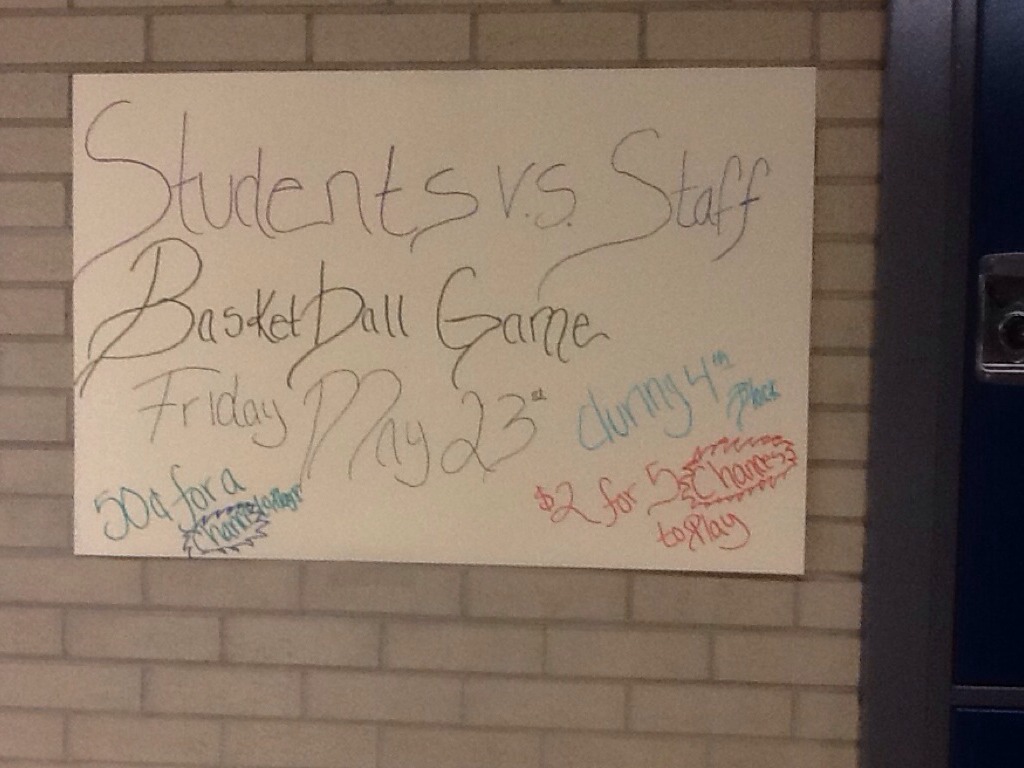 Students v.s. Staff
Basketball Game
Friday May 23rd during 4th
50¢ for a
chance to play
$2 for 5 chances
to play